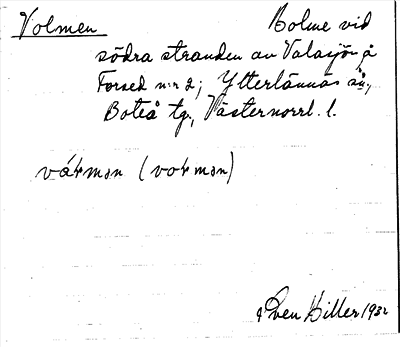 Volmen Bolme vid
södra stranden av Valasjön på
Forsed n:r 2; Ytterlännäs sn.,
Boteå tg., Västernorrl. l.
vátmən (votmən)
Sven Hiller 1932